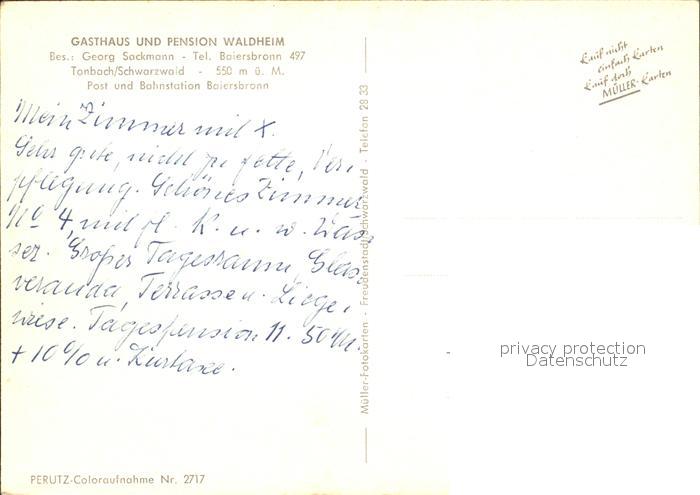 GASTHAUS UND PENSION WALDHEIM
Bes.: Georg Sackmann - Tel. Baiersbronn 497
Tonbach/Schwarzwald - 550 m ü. M.
Post und Bahnstation Baiersbronn
Mein Zimmer mit X.
Sehr gute, nicht zu fette, Ver-
pflegung. Schönes Zimmer
No 4, mit fl. K. u. w. Was-
ser. Großer Tagesraum, Glas-
veranda, Terrasse u. Liege-
wiese. Tagespension 11.50 M.
+ 10% u. Kurtaxe.
PERUTZ-Coloraufnahme Nr. 2717
Müller-Fotokarten - Freudenstadt/Schwarzwald - Telefon 28 33
Kauf nicht
einfach Karten
Kauf doch
MÜLLER-Karten
privacy protection
Datenschutz